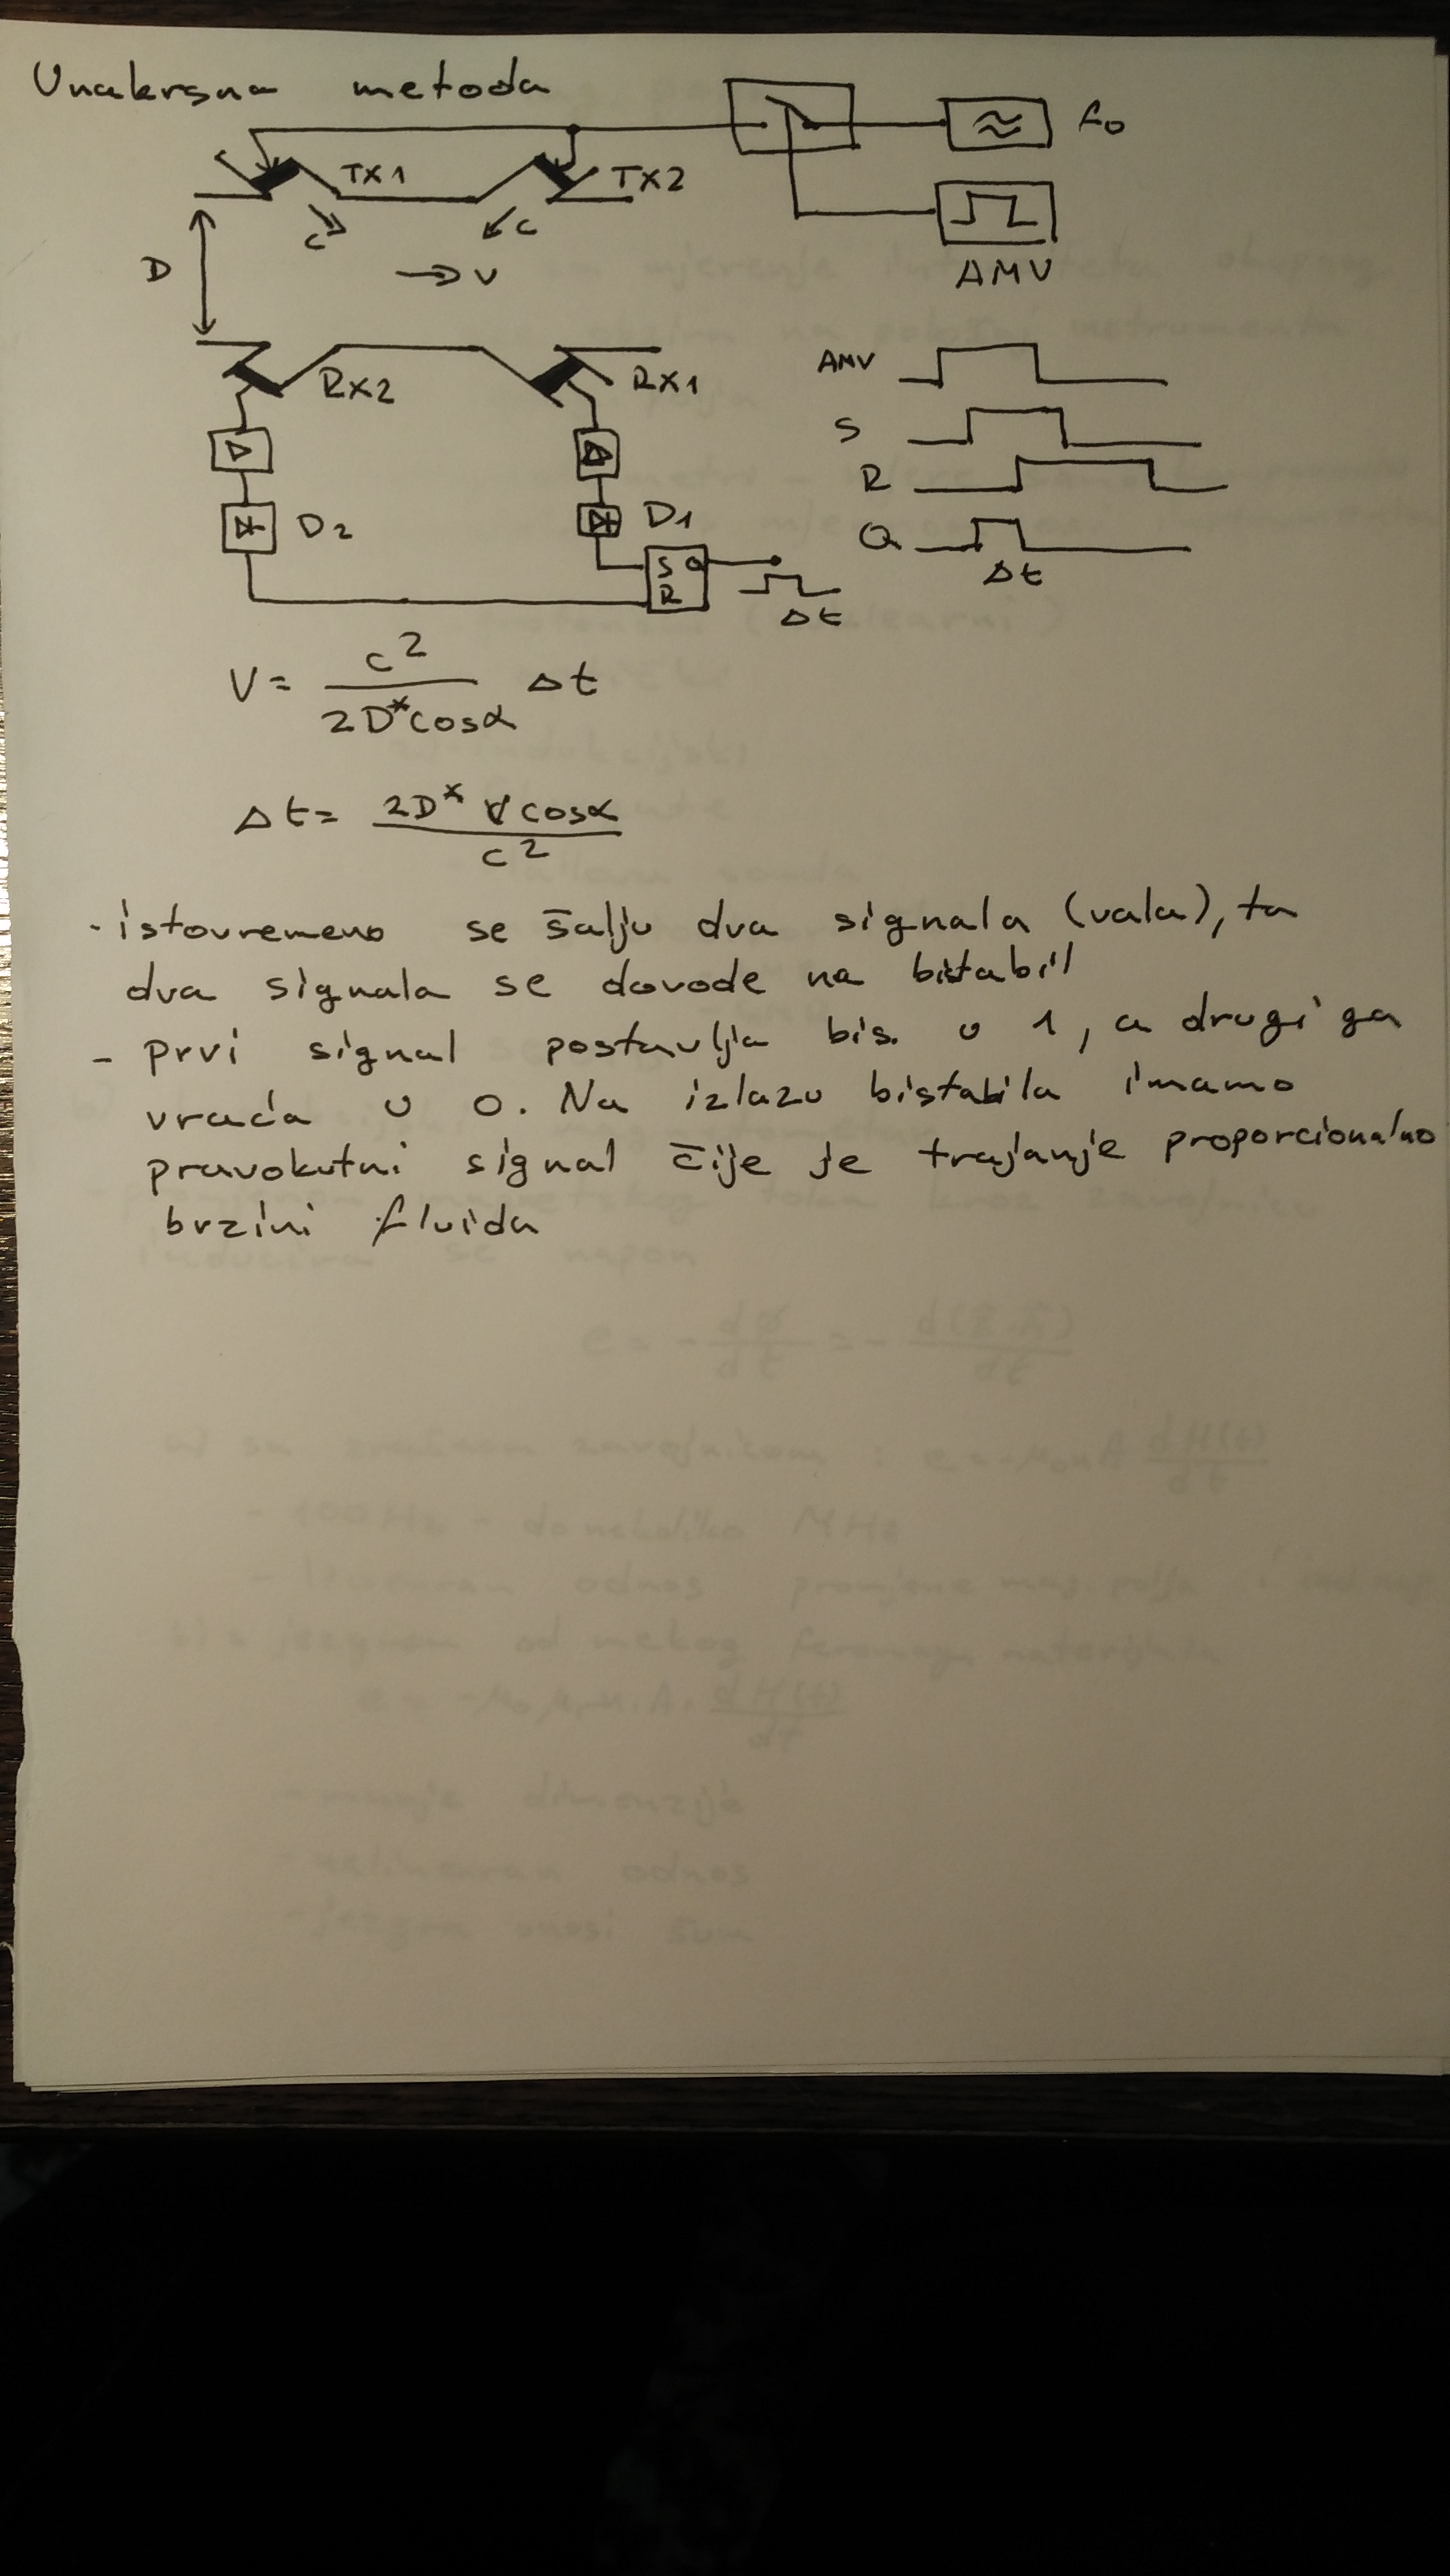 Unakrsna metoda
f0
TX1
TX2
c
c
D
v
AMV
RX2
RX1
AMV
S
R
Q
Δt
D2
D1
S Q
R
Δt
V = c² / 2D*cosα Δt
Δt = 2D* v cosα / c²
- istovremeno se šalju dva signala (vala), ta
dva signala se dovode na bistabil
- prvi signal postavlja bis. u 1, a drugi ga
vraća u 0. Na izlazu bistabila imamo
pravokutni signal čije je trajanje proporcionalno
brzini fluida